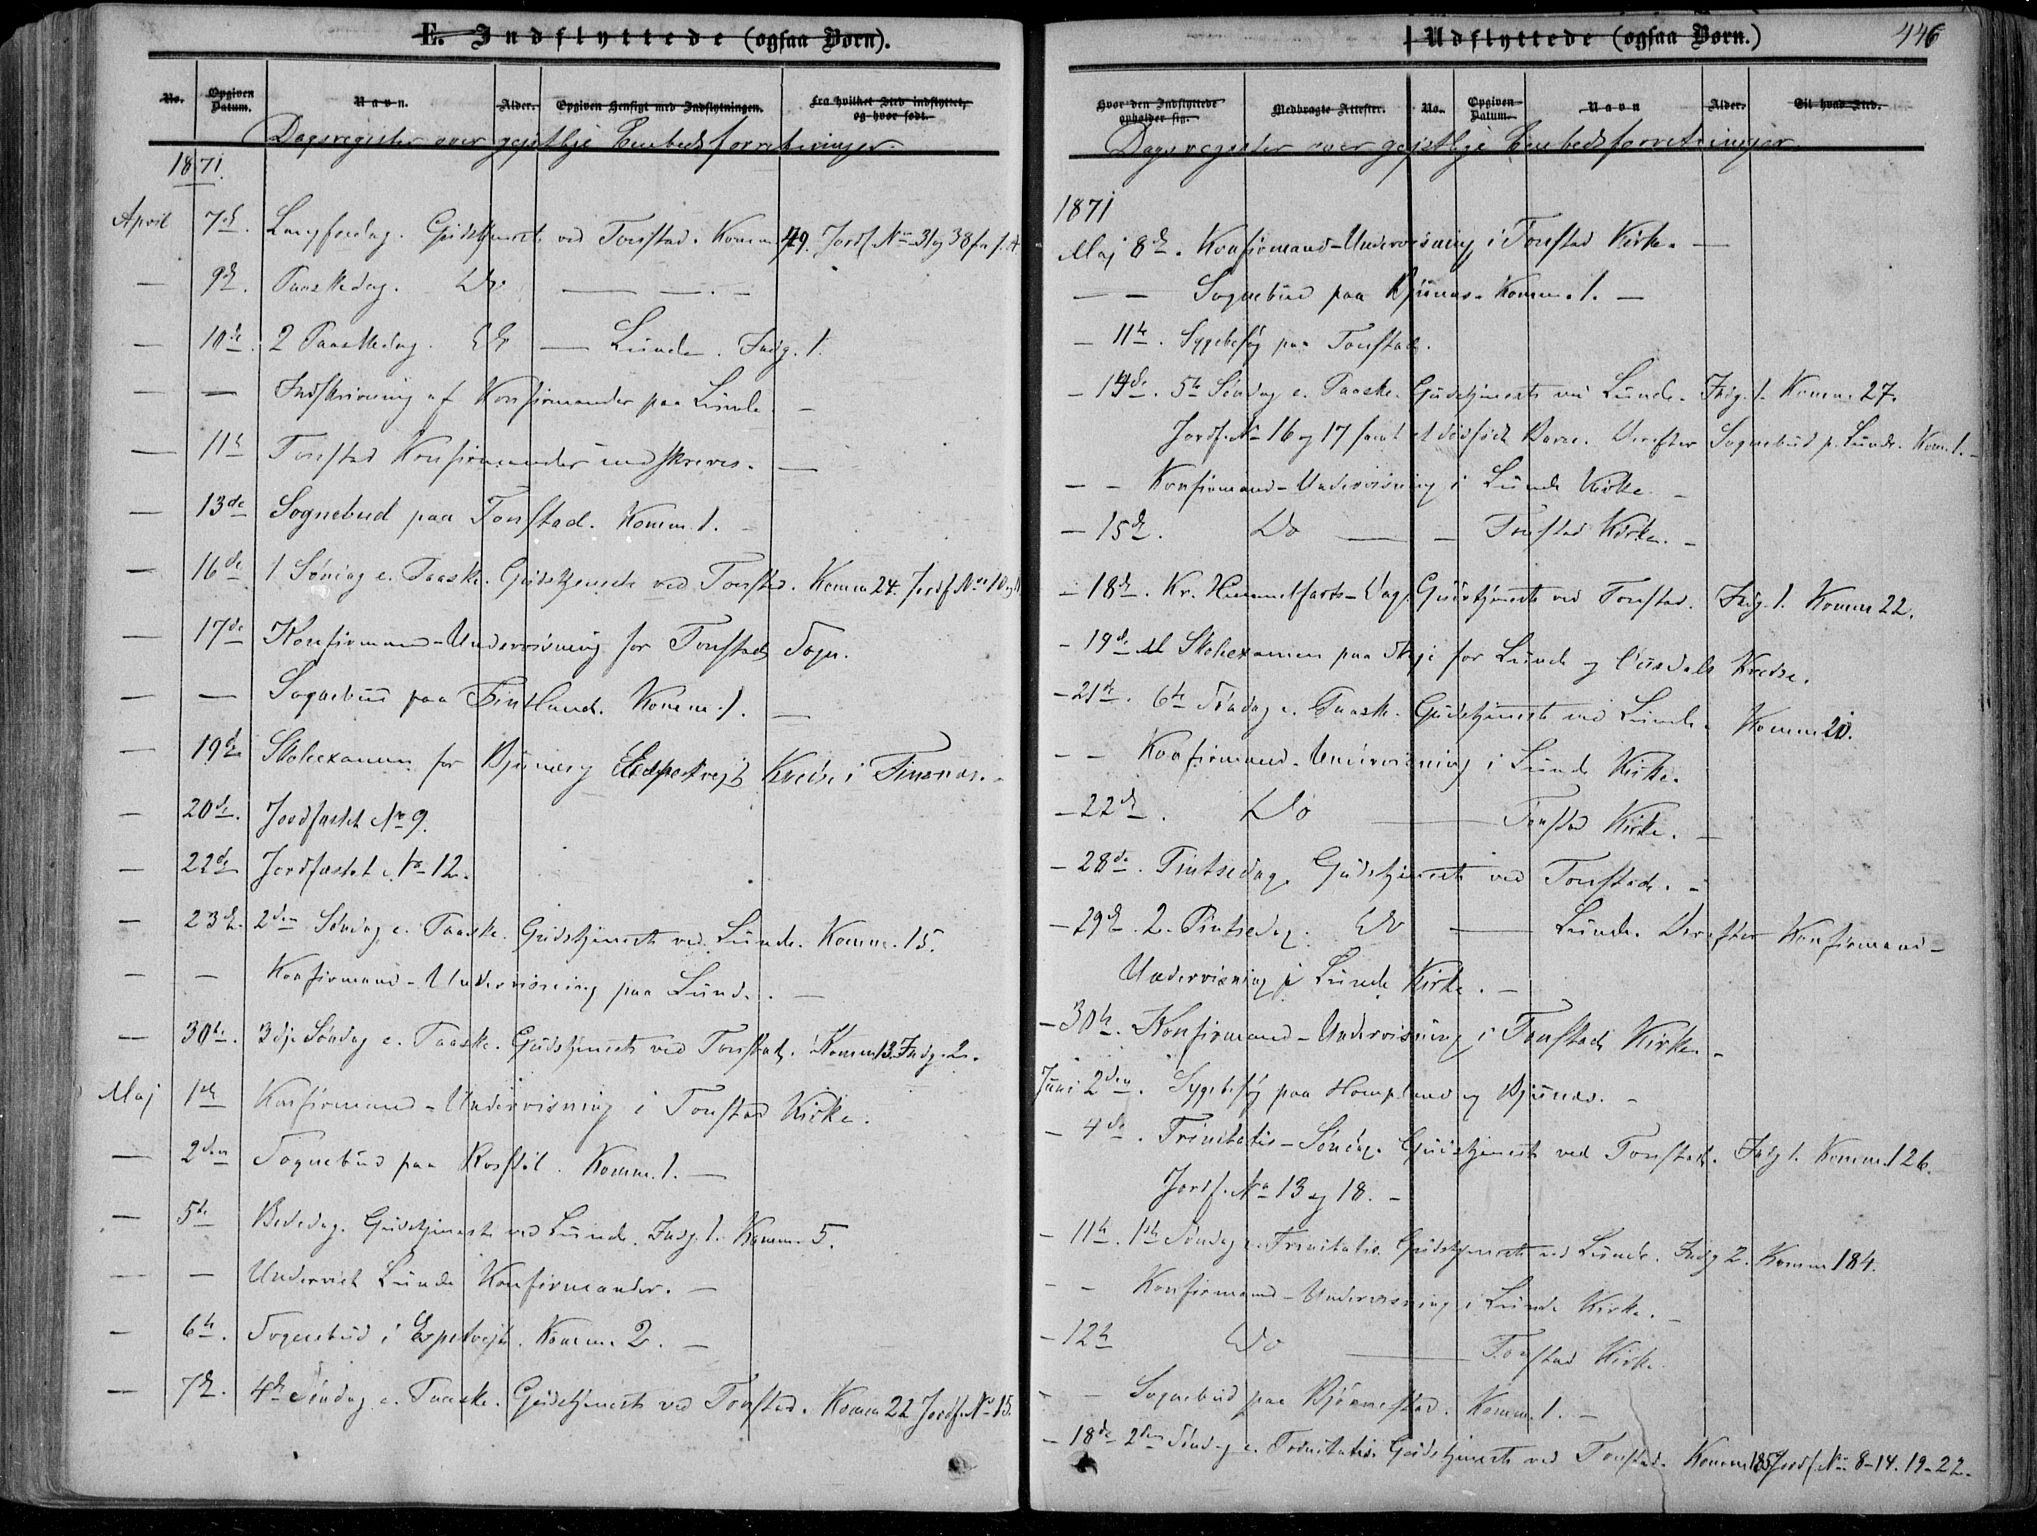 E. Indflyttede (ogsaa Børn).
No. Opgiven Datum. Navn. Alder. Opgiven Hensigt med Indflytningen. Fra hvilket Sted indflyttet, og hvor født.
Dagsregister over gejstlige Embedsforretninger.
1871.
April 7de. Langfredag. Gudstjeneste ved Tonstad. Komm. 49. Jordf. No 31 og 38 fra f. A.
— 9de. Paaskedag. Do — — —
— 10de. 2 Paaskedag. Do — Lunde. Indg. 1.
— — Indskrivning af Konfirmander paa Lunde. —
— 11te Tonstad Konfirmander indskreves. —
— 13de Sognebud paa Tonstad. Komm. 1. —
— 16de 1 Søndag e. Paaske. Gudstjeneste ved Tonstad. Komm 24. Jordf. No 10 og 11
— 17de Konfirmand-Undervisning for Tonstad Sogn.
— — Sognebud paa Fintland. Komm. 1. —
— 19de Skoleexamen for Bjunes og Espetvejt Kredse i Finsnæs. -
— 20de. Jordfæstet No 9.
— 22de Jordfæstet No 12.
— 23de. 2den Søndag e. Paaske. Gudstjeneste ved Lunde. Komm. 15.
— — Konfirmand-Undervisning paa Lunde. —
— 30te. 3dje Søndag e. Paaske. Gudstjeneste ved Tonstad. Komm 13. Indg. 2.
Maj 1ste Konfirmand-Undervisning i Tonstad Kirke.
— 2den Sognebud paa Rosstøl. Komm. 1. —
— 5te Bededag. Gudstjeneste ved Lunde. Indg. 1. Komm. 5.
— — Undervist Lunde Konfirmander. —
— 6te. Sognebud i Espetvejt. Komm. 2. —
— 7de. 4de Søndag e. Paaske. Gudstjeneste ved Tonstad. Komm 22 Jordf. No 15.
Udflyttede (ogsaa Børn.)
446
Hvor den Indflyttede opholder sig. Medbragte Attester. No. Opgiven Datum. Navn Alder. Til hvad Sted.
Dagsregister over gejstlige Embedsforretninger.
1871
Maj 8de. Konfirmand-Undervisning i Tonstad Kirke. —
— — Sognebud paa Bjunes. Komm. 1. —
— 11te. Sygebesøg paa Tonstad.
— 14de. 5te Søndag e. Paaske. Gudstjeneste ved Lunde. Indg. 1. Komm. 27.
Jordf. No 16 og 17 samt et dødfødt Barn. Derefter Sognebud p. Lunde. Kom. 1. -
— — Konfirmand-Undervisning i Lunde Kirke. —
— 15de. Do — — Tonstad Kirke. —
— 18de. Kr. Himmelfarts-Dag. Gudstjeneste ved Tonstad. Indg. 1. Komm 22.
— 19de Skoleexamen paa for Lunde og Ousdals Kredse.
— 21de. 6te Søndag e. Paaske. Gudstjeneste ved Lunde. Komm 20.
— — Konfirmand-Undervisning i Lunde Kirke.
— 22de. Do — Tonstad Kirke. —
— 28de. Pintsedag. Gudstjeneste ved Tonstad. —
— 29de. 2. Pintsedag. Do — Lunde. Derefter Konfirmand-
Undervisning i Lunde Kirke. —
— 30te. Konfirmand-Undervisning i Tonstad Kirke. -
Juni 2den. Sygebesøg paa Hompland og Bjunes. -
— 4de. Trinitatis-Søndag. Gudstjeneste ved Tonstad. Indg 1. Komm. 126.
Jordf. No 13 og 18. -
— 11te. 1ste Søndag e. Trinitatis. Gudstjeneste ved Lunde. Indg 2. Komm 184.
— Konfirmand-Undervisning i Lunde Kirke. —
— 12te Do — Tonstad Kirke.
— — Sognebud paa Bjørnestad. Komm. 1. —
— 18de 2den Søndag e. Trinitatis. Gudstjeneste ved Tonstad. Komm 185. Jordf. No 8-14. 19-22.